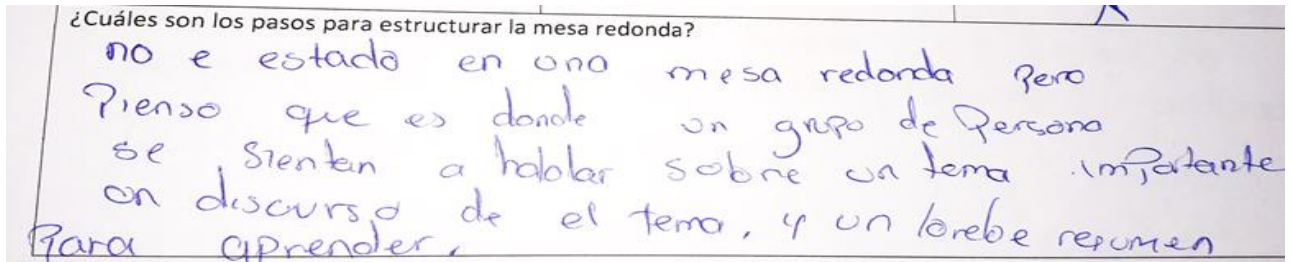 ¿Cuáles son los pasos para estructurar la mesa redonda?
no e estado en una mesa redonda Pero
Pienso que es donde un grupo de Persona
se sientan a hablar sobre un tema importante
un discurso de el tema, y un brebe resumen
Para aprender.